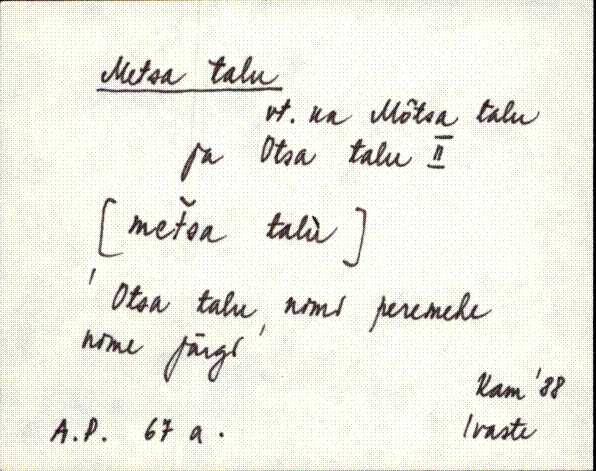 Metsa talu
vt. ka Mõtsa talu
ja Otsa talu II
[metsa talù]
'Otsa talu, nimi peremehe
nime järgi'
Kam '88
A.P. 67 a. Ivaste